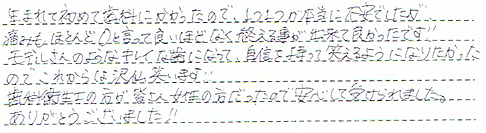 生まれて初めて歯科にかかったので、1つ1つが本当に不安でしたが、
痛みもほとんど0と言って良いほどなく終える事が出来て良かったです!!
モデルさんのようなキレイな歯になって、自信を持って笑えるようになりたかった
のでこれからは沢山笑います!!
歯科衛生士の方が皆さん女性の方だったので安心して受けられました。
ありがとうございました!!